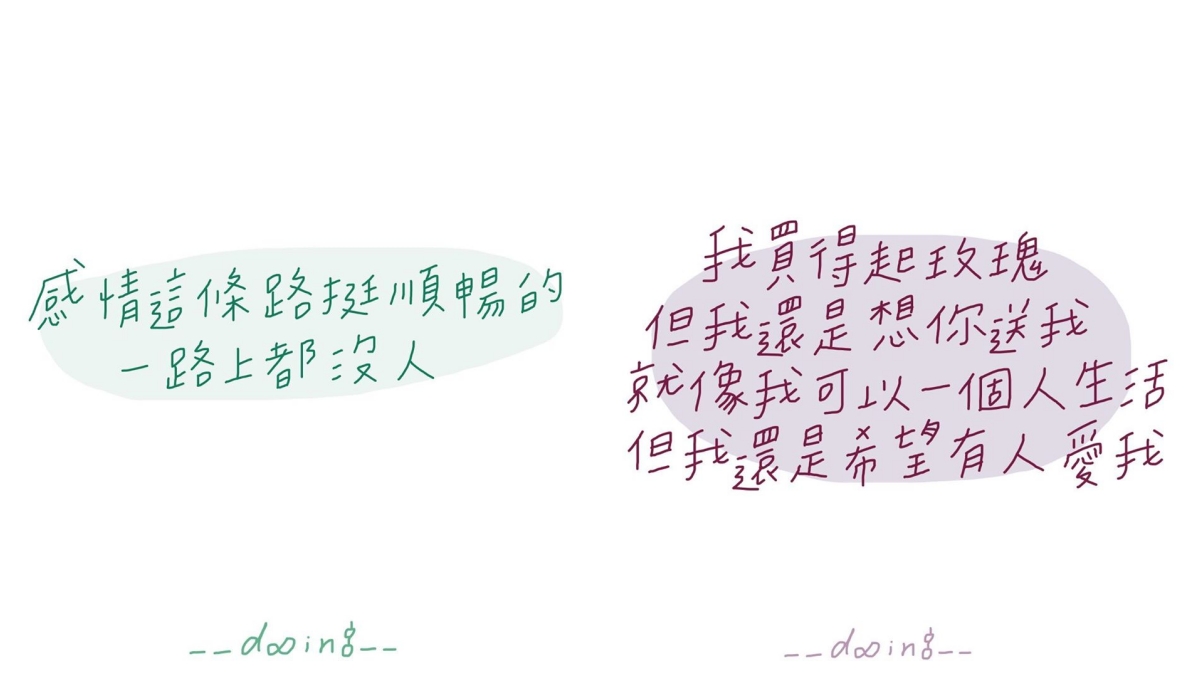 感情這條路挺順暢的
一路上都沒人
__dooing__
我買得起玫瑰
但我還是想你送我
就像我可以一個人生活
但我還是希望有人愛我
__dooing__